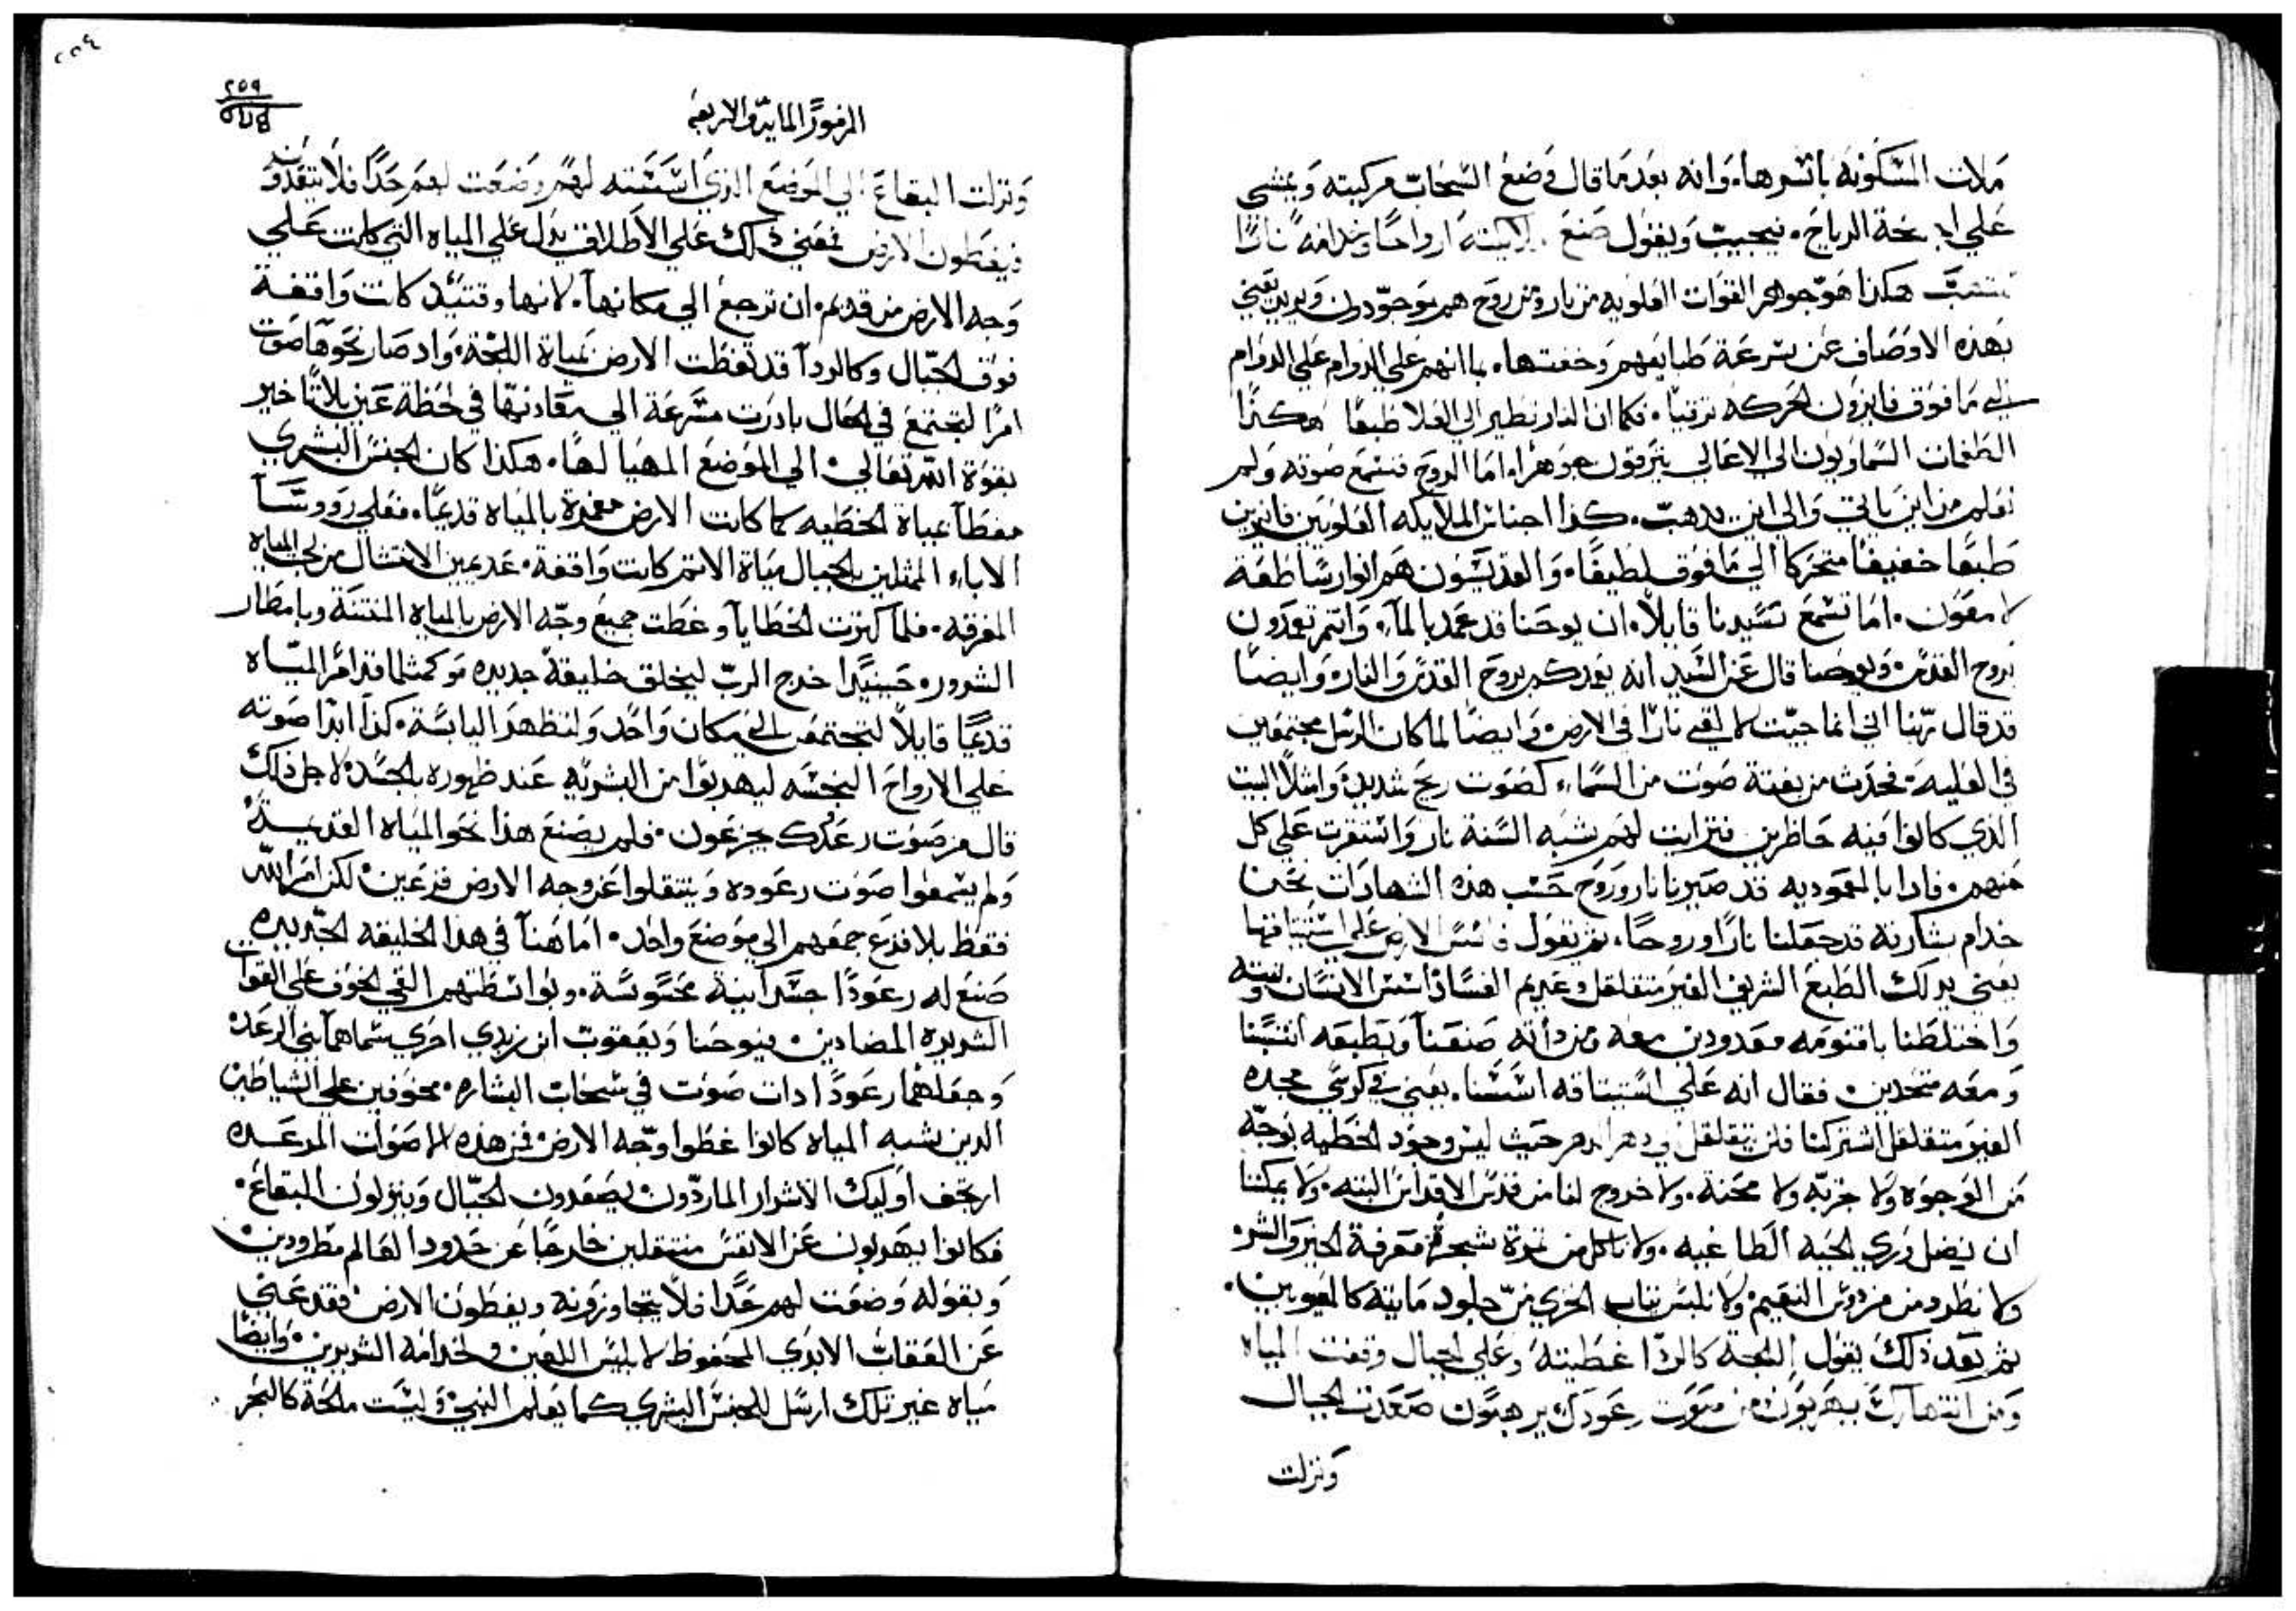 ملات المسكونه باسرها. وانه بعد ما قال وضع السحاب مركبته ويمشي
علي اجنحة الرياح. فيجيب ويقول صنع ملايكته ارواحا وخدامه نارا
هكذا هو جواهر القوات العلويه من نار ومن روح هم موجودون ويريد يعني
بهذه الاوصاف عن سرعة طبايعهم وخفتها. بما انهم علي الدوام علي الدوام
الي ما فوق فايزون الحركه ترتيبا. فكما ان النار تطير الي العلا طبعا هكذا
الطغمات السماويون الي الاعالي يترقون جوهرا. اما الروح فتسمع صوته ولم
تعلم من اين ياتي والي اين يدهب. كذا اجناس الملايكه العلويين فايزين
طبعا خفيفا متحركا الي ما فوق لطيفا. والقديسون هم انوار ساطعة
لامعون. اما تسمع سيدنا قايلا. ان يوحنا قد عمد بالماء. وانتم تعمدون
بروح القدس ويوحنا قال عن السيد انه يعمدكم بروح القدس والنار. وايضا
قد قال ربنا اني انما جيت لالقي نارا في الارض. وايضا لما كان الرسل مجتمعين
في العليه. فحدث من بغتة صوت من السماء كصوت ريح شديدة وامتلا البيت
الدي كانوا فيه حاظرين فترايت لهم شبه السنة نار واستقرت علي كل
منهم. فادا بالمعموديه قد صيرنا نار وروح حسب هذه الشهادات نحن
خدام بشارته قد جعلنا نارا وروحا. ثم يقول واسس الارض علي استيثاقها
يعني بدلك الطبع الشريف الغير متقلقل وعديم الفساد اسس الانسان بيته
واختلطنا باقنومه معدودين معه من داته صنعنا وبطبعه انتسبنا
ومعه متحدين. فقال انه علي استيثاقه اسسنا. يعني في كرسي مجده
الغير متقلقل اشتركنا فلن تتقلقل ودهر الدهر حيث ليس وجود الخطيه بوجه
من الوجوه ولا حزبه ولا محنة. ولا خروج لنا من قدس الاقداس البته. ولا يمكننا
ان يضل بري الحيه الطاغيه. ولا ناكل من ثمرة شجرة معرفة الخير والشر
ولا نطرد من فردوس النعيم. ولا نلبس تياب الخزي من جلود مايته كالمغويين.
ثم بعد ذلك يقول اللجة كالردا غطيته وعلي الجبال وقفت المياه
ومن انتهارك يهربون من صوت رعودك يرهبون صعدت الجبال
ونزلت
٢٥٤
٢٥٩
المزمور الماية والاربعه
ونزلت البقاع الي الموضع الذي اسسته لهم وضعت لهم حدا فلا يتعدونه
فيغطون الارض فمعني ذلك علي الاطلاق يدل علي المياه التي كانت علي
وجه الارض من قديم. ان ترجع الي مكانها. لانها وقتئيد كانت واقفة
فوق الجبال وكالردا قد تغطت الارض بمياة اللجة. واد صار نحوها صوت
امرا لتجتمع في الحال بادرت مسرعة الي مقادنها في لحظة عين بلا تاخير
بقوة الله تعالي. الي الموضع المهيا لها. هكذا كان الجنس البشري
مغطا بمياة الخطيه كما كانت الارض مغمرة بالمياه قديما. فعلي رووسا
الاباء الممثلين بالجبال مياة الاثم كانت واقفة. عديمين الانتشال من لجج المياه
المغرقة. فلما كترت الخطايا وغطت جميع وجه الارض بالمياه المنتنة وبامطار
الشرور. حينيدا خرج الرب ليخلق خليقة جديده كمثلما قد امر المياه
قديما قايلا لتجتمعن الي مكان واحد ولتظهر اليابسة. كذا ابدا صوته
علي الارواح النجسه ليهربوا من البشريه عند ظهوره بالجسد. لاجل ذلك
قال من صوت رعدك يجزعون. فلم يصنع هذا نحو المياه القديمة
ولم يسمعوا صوت رعوده وينتقلوا عن وجه الارض فزعين. لكن امر الله
فقط بلا فزع جمعهم الي موضع واحد. اما هنا في هذا الخليقه الجديده
صنع له رعودا جسدانية محسوسة. وبواسطتهم القي الخوف علي القوات
الشريره المضادين. فيوحنا ويعقوب ابن زبدي سماهما ابني الرعد
وجعلهما رعودا ادات صوت في سحاب البشاره. مخوفين علي الشياطين
الدين شبه المياه كانوا غطوا وجه الارض. فمن هذه الاصوات المرعده
ارتجف اوليك الاشرار الماردون يصعدون الجبال وينزلون البقاع.
فكانوا يهربون عن الانفس منتقلين خارجا عن حدود العالم مطرودين
وبقوله وضعت لهم حدا فلا يتجاوزونه ويغطون الارض. فقد عني
عن العقاب الابدي المحفوظ لابليس اللعين ولخدامه الشريرين. وايضا
مياه غير تلك ارسل للجنس البشري كما يعلم النبي وليست مالحة كالبحر